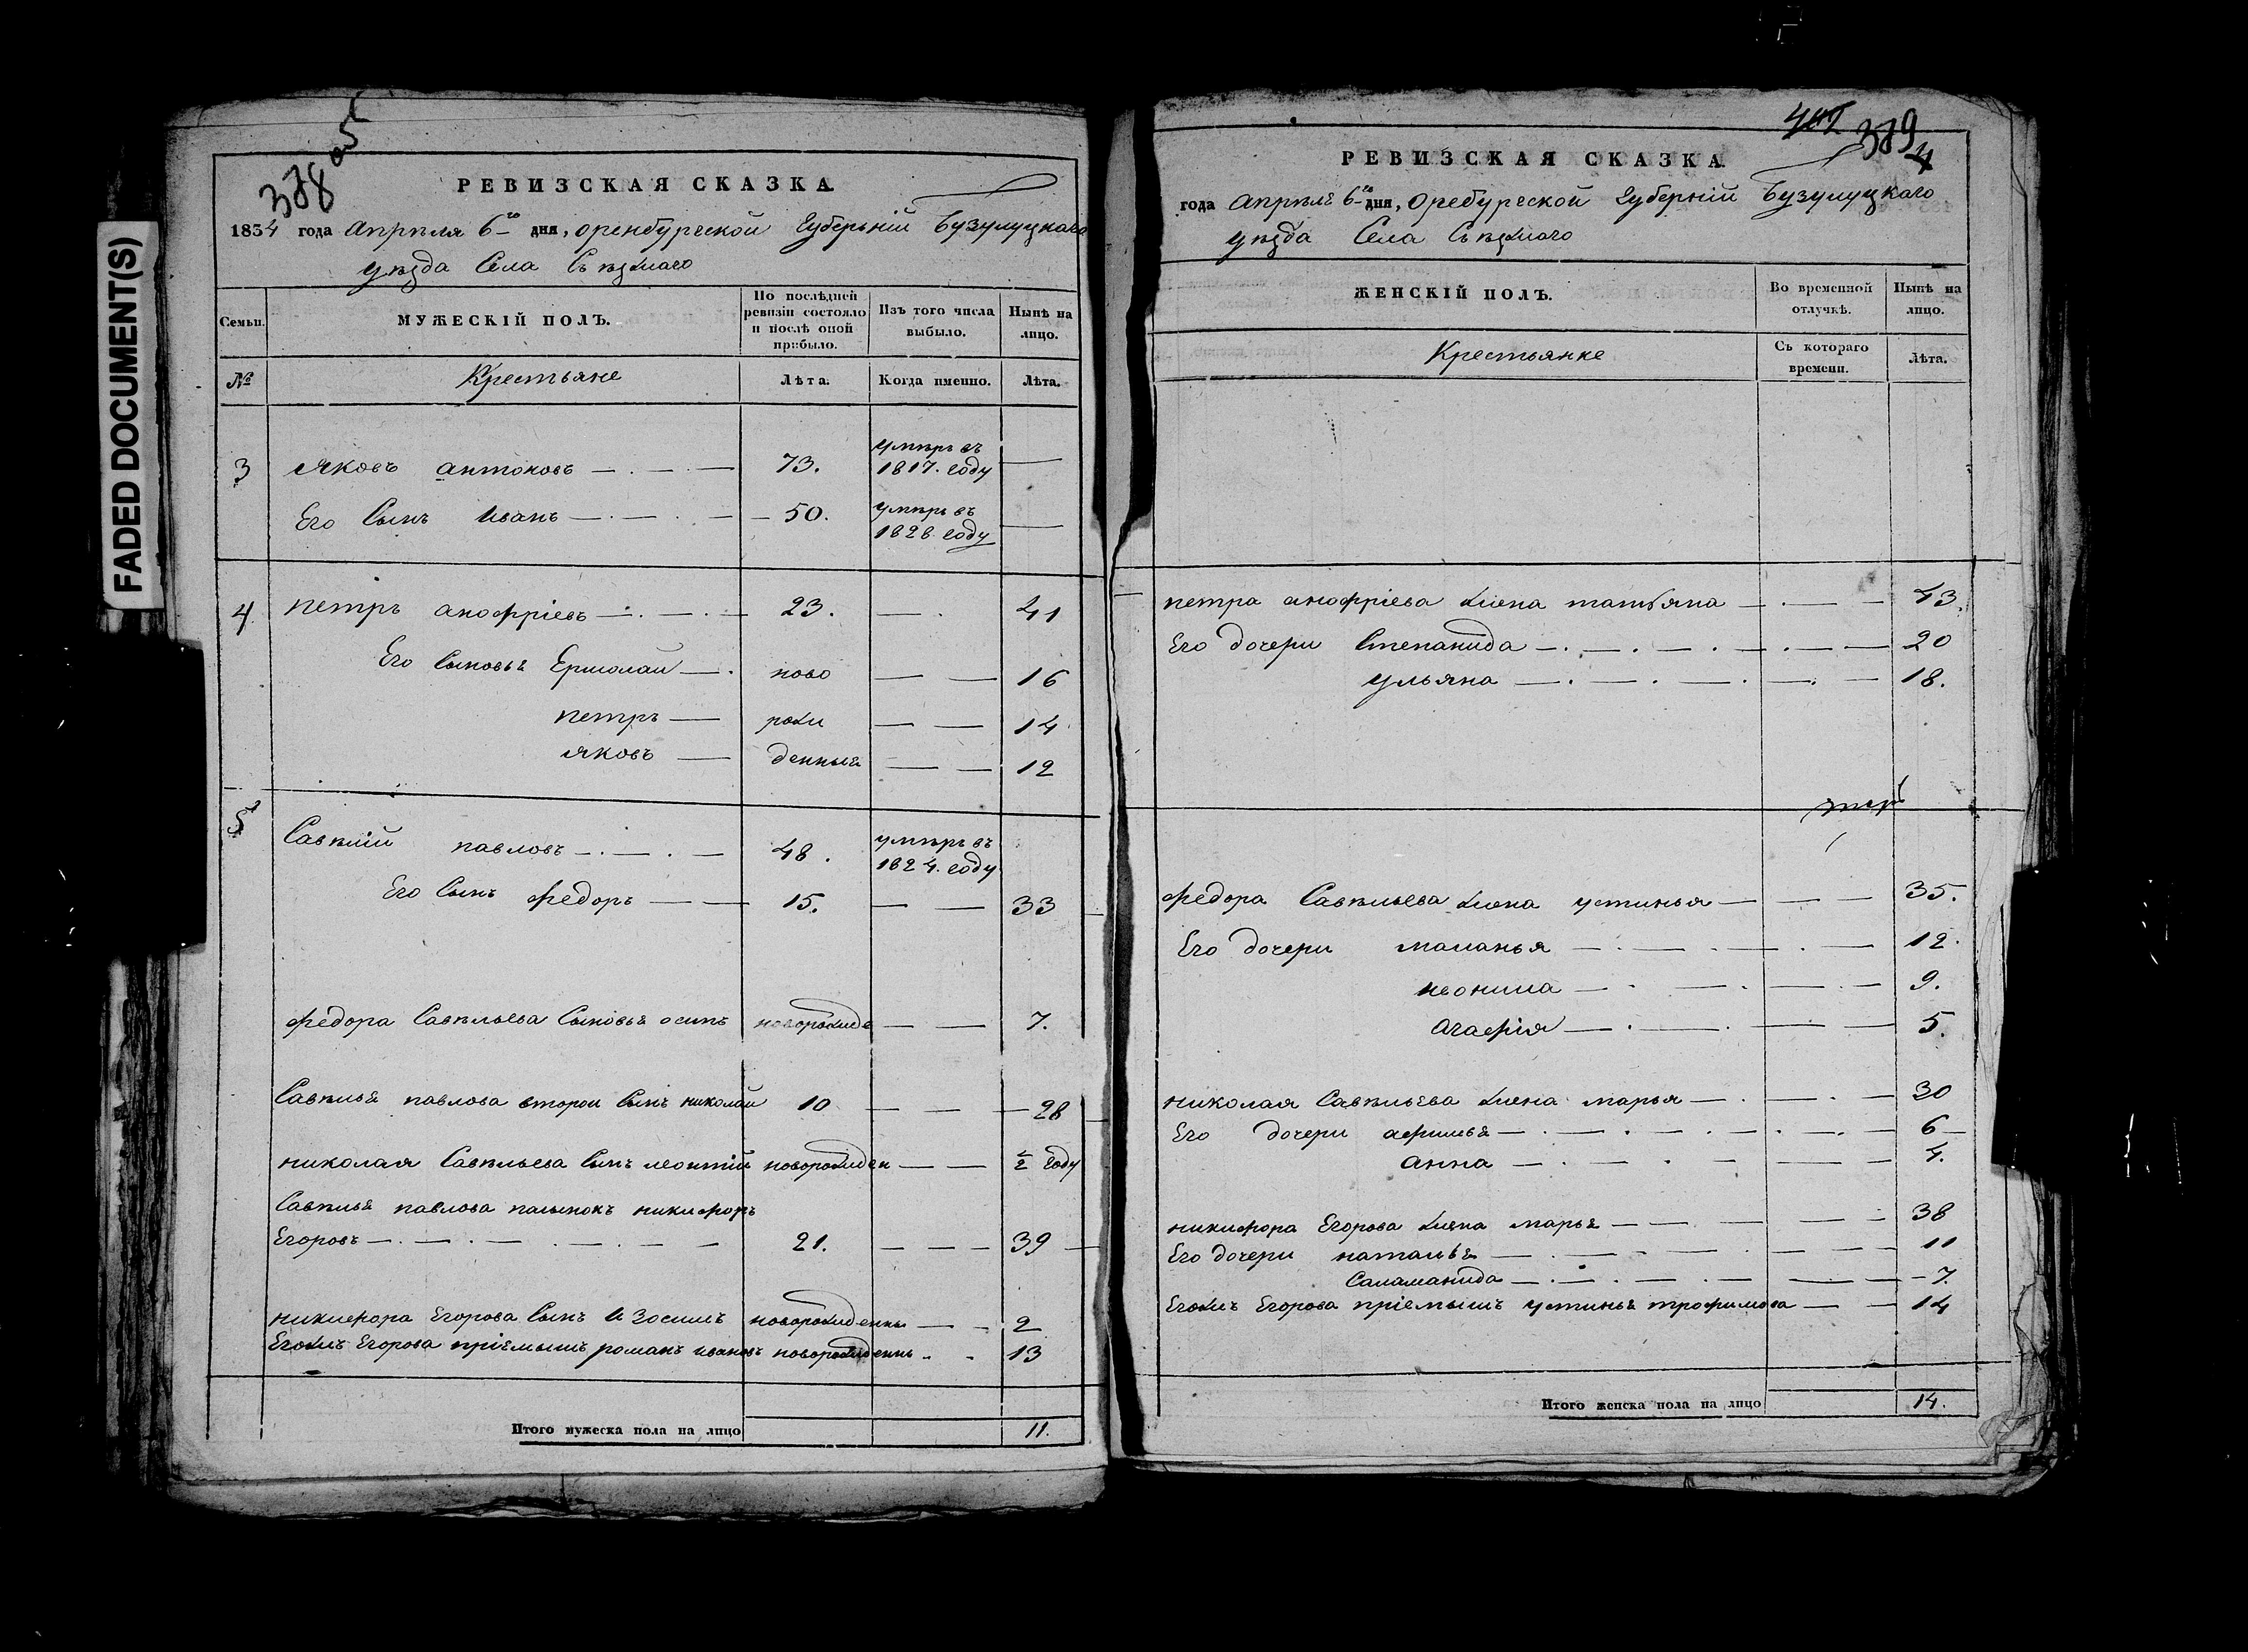 FADED DOCUMENT(S)
378
РЕВИЗСКАЯ СКАЗКА.
1834 года апрѣля 6го дня, оренбургской Губерьнiй Бузулуцкаго
уѣзда Села Съѣзжаго
Семьи.
МУЖЕСКІЙ ПОЛЪ.
По послѣдней ревизіи состояло и послѣ оной прибыло.
Изъ того числа выбыло.
Нынѣ на лицо.
№
Крестьяне
Лѣта.
Когда именно.
Лѣта.
3 яковъ антоновъ 73. умѣръ въ 1817. году
Его Сынъ иванъ 50. умѣръ въ 1828 году
4 петръ анофріевъ 23. 41
Его Сыновья Ермолаи ново 16
петръ рожи 14
яковъ денныя 12
5 Савѣлій павловъ 48. умѣръ въ 1824. году
Его Сынъ федоръ 15. 33
федора Савѣльева Сыновья осипъ новорожде 7.
Савѣлья павлова второи Сынъ николаи 10 28
николая Савѣльева Сынъ леонтіи новорожден ½ году
Савѣлья павлова пасынокъ никифоръ
Егоровъ 21. 39
никифора Егорова Сынъ Изосимъ новорожденны 2
Егожъ Егорова пріемышъ романъ ивановъ новорожденнъ 13
Итого мужеска пола на лицо 11.
379
4
РЕВИЗСКАЯ СКАЗКА.
года апрѣля 6го дня, оребургской Губерніи Бузулуцкаго
уѣзда Села Съѣзжаго
ЖЕНСКІЙ ПОЛЪ.
Во временной отлучкѣ.
Нынѣ на лицо.
Крестьянке
Съ котораго времени.
Лѣта.
петра анофріева жена татьяна 43.
Его дочери Степанида 20
ульяна 18.
федора Савѣльева жена устинья 35.
Его дочери маланья 12.
неонила 9.
агафія 5.
николая Савѣльева жена марья 30
Его дочери афимья 6
анна 4.
никифора Егорова жена марья 38
Его дочери наталья 11
Саламанида 7.
Егожъ Егорова пріемышъ устинья трофимова 14
Итого женска пола на лицо 14.